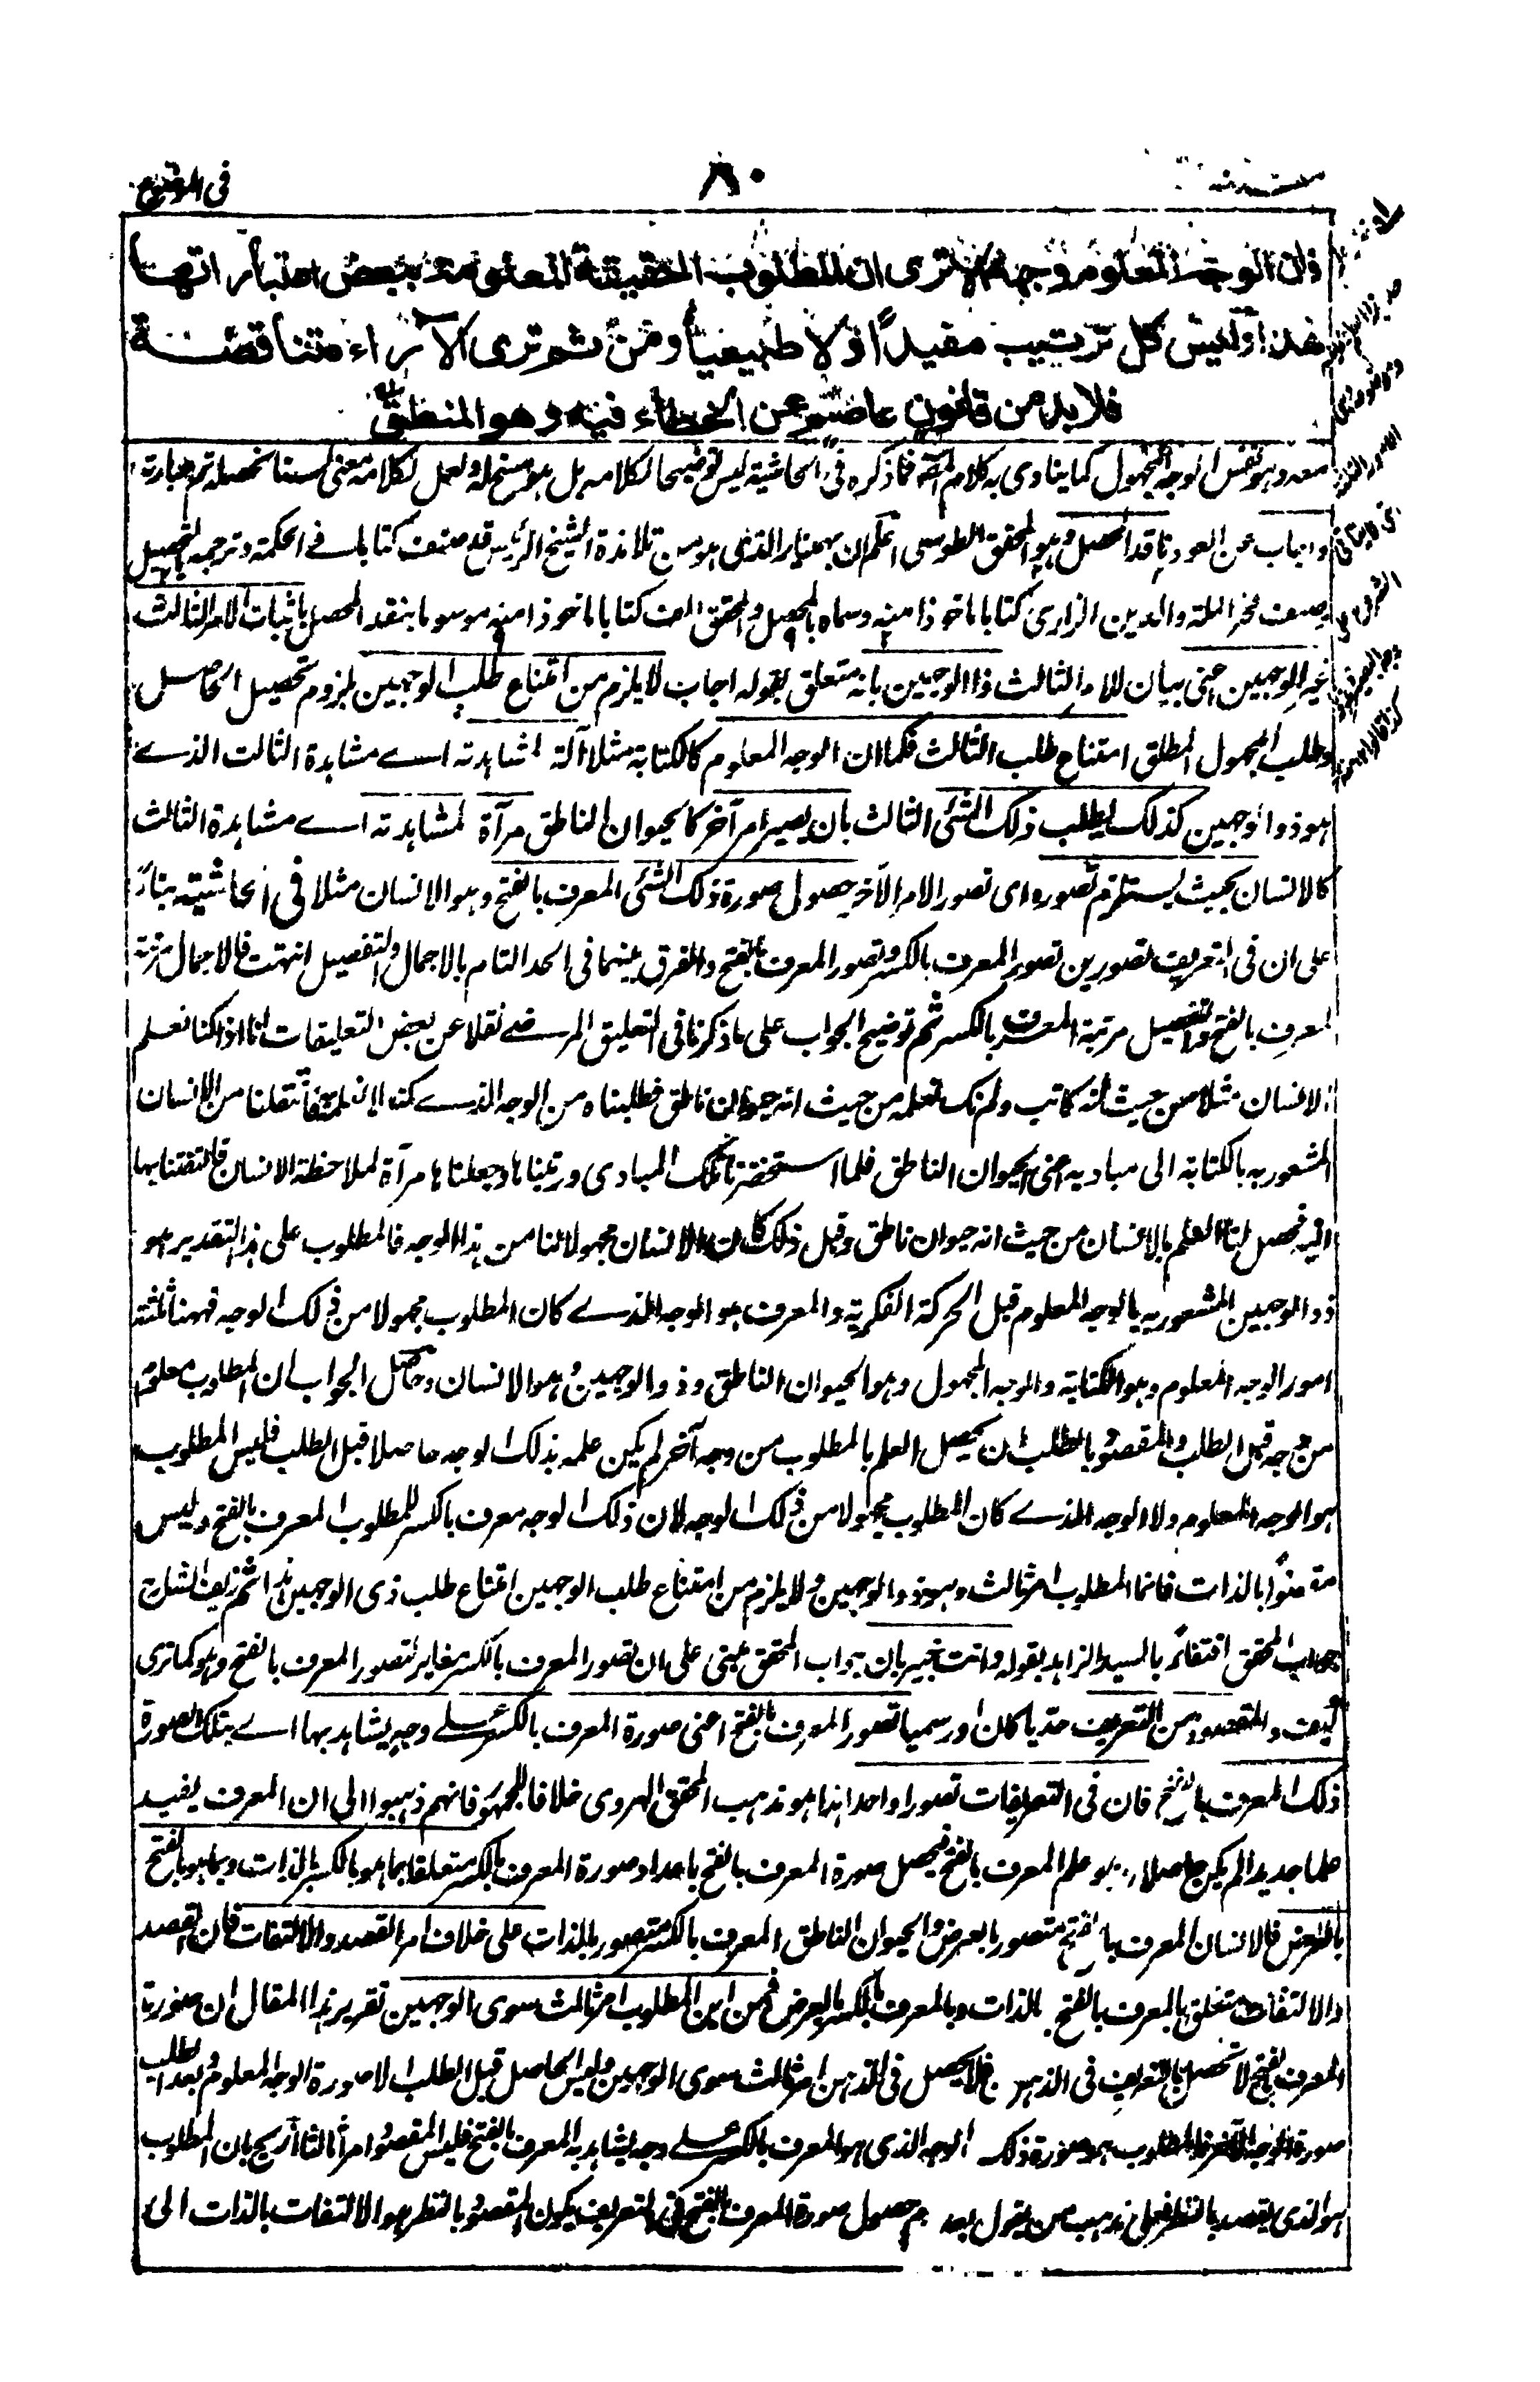 مقدمة
٨٠
في الموضوع
فان الوجه المعلوم وجهه الا ترى ان المطلوب الحقيقة المعلومة ببعض اعتباراتها
هذا وليس كل ترتيب مفيدًا ولا طبيعيا ومن ثم ترى الآراء متناقضة
فلا بد من قانون عاصم عن الخطاء فيه وهو المنطق
وهو نفس الوجه المجهول كما ينادى به كلام فما ذكره في الحاشية ليس توضيحا لكلامه بل هو مسخ له ولعل لكلامه معنى لسنا نحصله تم عبارته
واجاب عن العود ناقد المحصل وهو المحقق الطوسى اعلم ان بهمنيار الذى هو من تلامذة الشيخ الرئيس قد صنف كتابا في الحكمة وترجمه بالتحصيل
وصنف فخر الملة والدين الرازى كتابا ماخوذا منه وسماه بالمحصل والمحقق الف كتابا ماخوذا منه موسوما بنقد المحصل باثبات الامر الثالث
غير الوجهين اعنى بيان للامر الثالث ذا الوجهين بانه متعلق بقوله اجاب لا يلزم من امتناع طلب الوجهين بلزوم تحصيل الحاصل
وطلب المجهول المطلق امتناع طلب الثالث فكما ان الوجه المعلوم كالكتابة مثلا آلة لمشاهدته اے مشاهدة الثالث الذے
هو ذو الوجهين كذلك ليطلب ذلك الشئ الثالث بان يصير امر آخر كالحيوان الناطق مرآة لمشاهدته اے مشاهدة الثالث
كالانسان بحيث يستلزم تصوره اى تصور الامر الآخر حصول صورة ذلك الشئ المعرف بالفتح وهو الانسان مثلا في الحاشية بناءً
على ان في التعريف تصورين تصور المعرف بالكسر وتصور المعرف بالفتح والفرق بينهما في الحد التام بالاجمال والتفصيل انتهت فالاجمال مرتبة
المعرف بالفتح والتفصيل مرتبة المعرف بالكسر ثم توضيح الجواب على ما ذكرنا في التعليق المرضے نقلا عن بعض التعليقات انا اذا كنا نعلم
الانسان مثلا من حيث انه كاتب ولم نك نعلمه من حيث انه حيوان ناطق فطلبناه من الوجه الذے فانتقلنا من الانسان
المشعور به بالكتابة الى مباديه اعنى الحيوان الناطق فلما استحضرنا تلك المبادى ورتبناها وجعلناها مرآة لملاحظة الانسان فالتفتنا بها
اليه فحصل لنا العلم بالانسان من حيث انه حيوان ناطق وقبل ذلك كان الانسان مجهولا لنا من هذا الوجه فالمطلوب على هذا التقدير هو
ذو الوجهين المشعور به بالوجه المعلوم قبل الحركة الفكرية والمعرف هو الوجه الذے كان المطلوب مجهولا من ذلك الوجه فههنا ثلثة
امور الوجه المعلوم وهو الكتابة والوجه المجهول وهو الحيوان الناطق وذو الوجهين وهو الانسان وحاصل الجواب ان المطلوب معلوم
من وجه قبل الطلب والمقصود بالطلب ان يحصل العلم بالمطلوب من وجه آخر لم يكن علمه بذلك الوجه حاصلا قبل الطلب فليس المطلوب
هو الوجه المعلوم ولا الوجه الذے كان المطلوب مجهولا من ذلك الوجه لان ذلك الوجه معرف بالكسر للمطلوب المعرف بالفتح وليس
مقصودًا بالذات فانما المطلوب امر ثالث وهو ذو الوجهين ولا يلزم من امتناع طلب الوجهين امتناع طلب ذى الوجهين هذا ثم زيف الشارح
جواب المحقق اقتفاءً بالسيد الزاهد بقوله وانت خبير بان جواب المحقق مبنى على ان تصور المعرف بالكسر مغاير لتصور المعرف بالفتح وهو كما ترى
كيف والمقصود من التعريف حديا كان او رسميا تصور المعرف بالفتح اعنى صورة المعرف بالكسر علے وجه يشاهد بها اے بتلك الصورة
ذلك المعرف بالفتح فان في التعريفات تصورا واحدا هذا هو مذهب المحقق الهروى خلافا للجمهور فانهم ذهبوا الى ان المعرف يفيد
علما جديدا لم يكن حاصلا وهو علم المعرف بالفتح فيحصل صورة المعرف بالفتح باعداد صورة المعرف بالكسر متعلقا بما هو بالكسر بالذات وبما هو بالفتح
بالعرض فالانسان المعرف بالفتح متصور بالعرض والحيوان الناطق المعرف بالكسر متصور بالذات على خلاف امر القصد والالتفات فان القصد
والالتفات متعلق بالمعرف بالفتح بالذات وبالمعرف بالكسر بالعرض فمن اين المطلوب امر ثالث سوى الوجهين تقرير هذا المقال ان صورة
المعرف بالفتح لا تحصل بالتعريف في الذهن فلا يحصل في الذهن امر ثالث سوى الوجهين وليس الحاصل قبل الطلب الا صورة الوجه المعلوم وبعد الطلب
صورة الوجه الآخر فالمطلوب هو صورة ذلك الوجه الذى هو المعرف بالكسر علے وجه يشاهد به المعرف بالفتح فليس المقصود امرا ثالثا اريح بان المطلوب
هو الذى يقصد بالنظر فعلى مذهب من يقول بعدم حصول صورة المعرف بالفتح في التعريف يكون المقصود بالنظر هو الالتفات بالذات الى